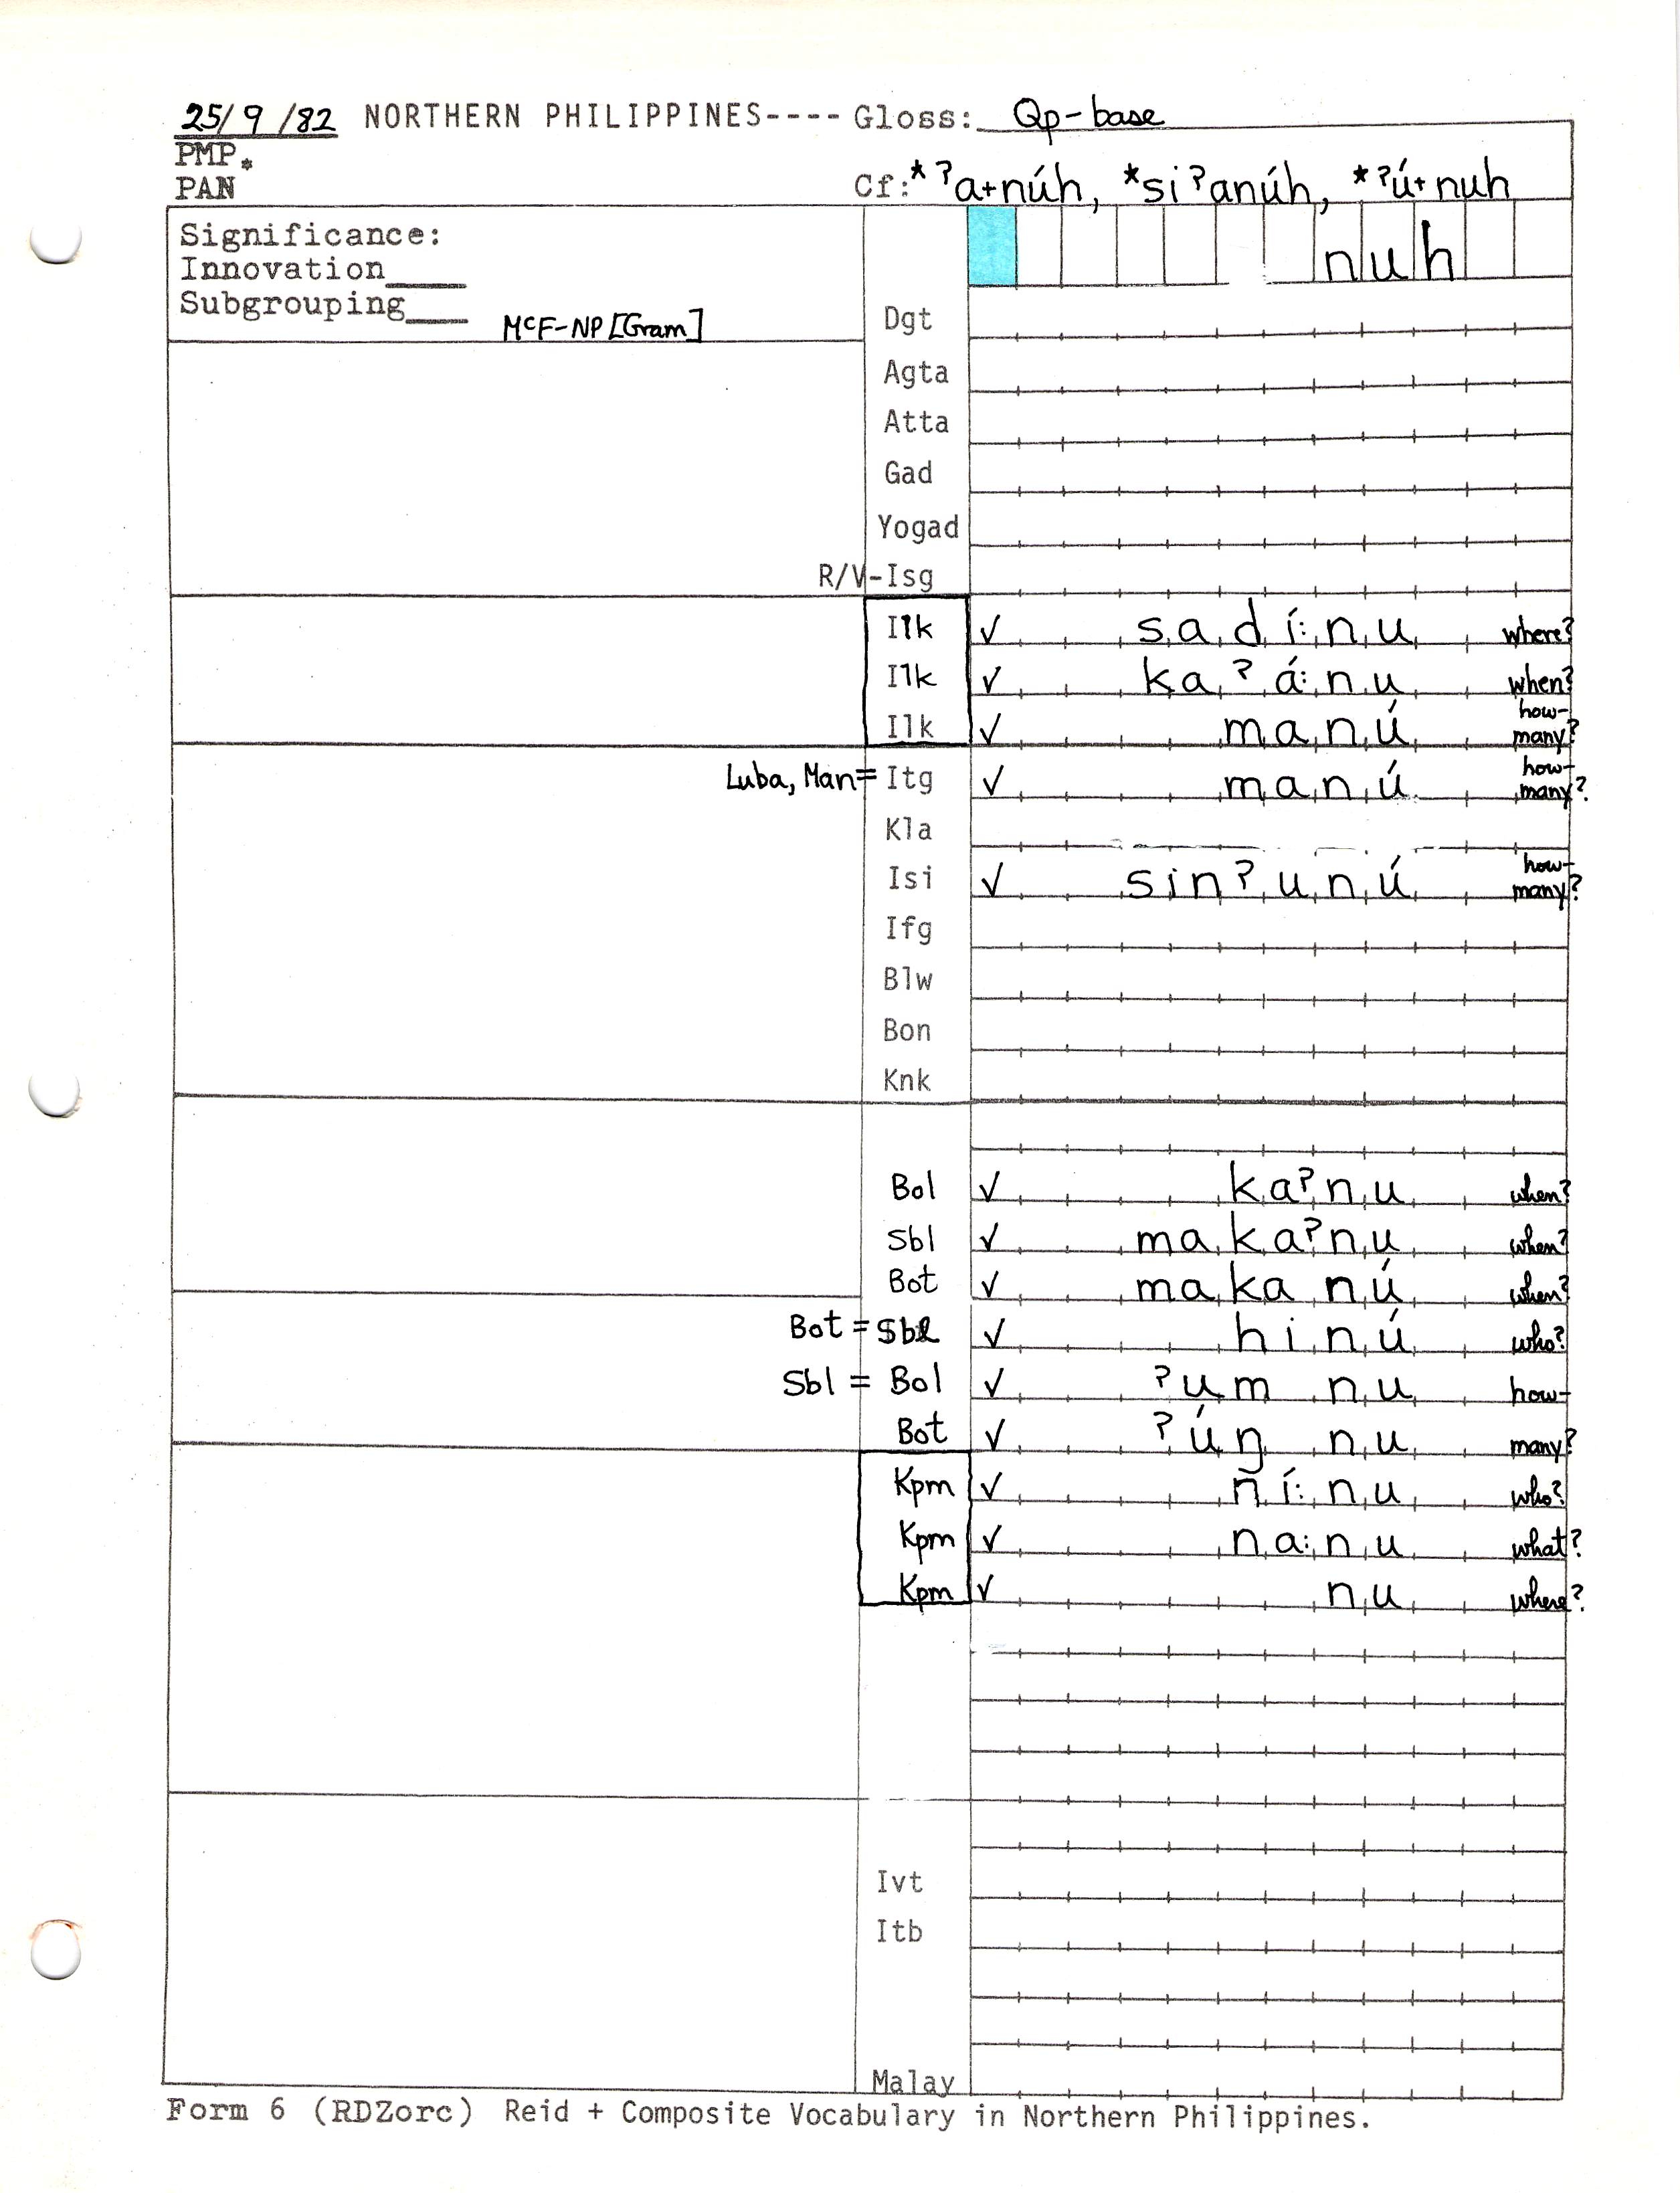 25/9/82 NORTHERN PHILIPPINES---- Gloss: Qp-base
PMP*
PAN Cf: *ʔa+núh, *siʔanúh, *ʔú+nuh
Significance: nuh
Innovation____
Subgrouping____ McF-NP [Gram]
Dgt
Agta
Atta
Gad
Yogad
R/V-Isg
Ilk ✓ sadí:nu where?
Ilk ✓ kaʔá:nu when?
Ilk ✓ manú how-many?
Luba, Man= Itg ✓ manú how-many?
Kla
Isi ✓ sinʔunú how-many?
Ifg
Blw
Bon
Knk
Bol ✓ kaʔnu when?
Sbl ✓ makaʔnu when?
Bot ✓ makanú when?
Bot = Sbl ✓ hinú who?
Sbl = Bol ✓ ʔum nu how-
Bot ✓ ʔúŋ nu many?
Kpm ✓ ñí:nu who?
Kpm ✓ na:nu what?
Kpm ✓ nu where?
Ivt
Itb
Malay
Form 6 (RDZorc) Reid + Composite Vocabulary in Northern Philippines.